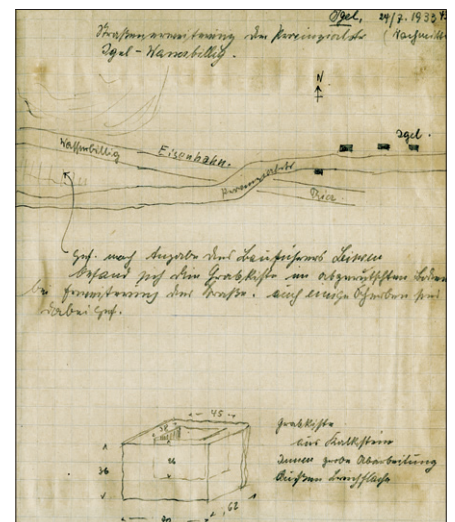 Igel, 24/7. 1933
Straßenerweiterung der Provinzialstr. (Nachmitt
Igel-Wasserbillig.
N
Igel.
Wasserbillig
Eisenbahn.
Provinzialstr.
gef. nach Angabe des Bauführers
befand sich die Grabkiste im abgerutschten Boden
bei Erweiterung der Straße. auch einige Scherben sei
dabei gef.
45
38
36
62
Grabkiste
aus Kalkstein
Innen grobe Abarbeitung
Außen Bruchfläche